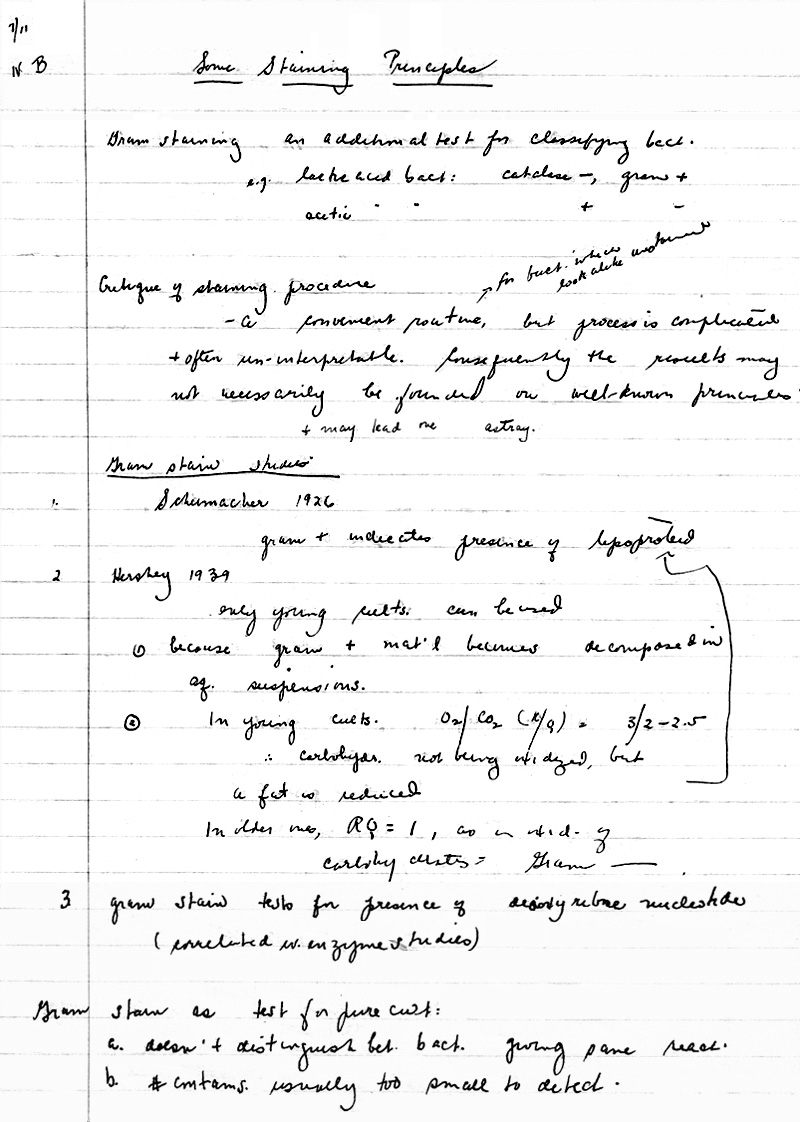 7/11
IV B
Some Staining Principles
Gram staining an additional test for classifying bact.
e.g. lactic acid bact: catalase -, gram +
acetic " " + -
for bact. which
look alike
Critique of staining procedure
- a convenient routine, but process is complicated
+ often un-interpretable. Consequently the results may
not necessarily be founded on well-known principles
+ may lead one astray.
Gram stain studies
1. Schumacher 1926
gram + indicates presence of lipoproteid
2 Hershey 1939
only young cults. can be used
① because gram + mat'l becomes decomposed in
aq. suspensions.
② In young cults. O2/CO2 (R/Q) = 3/2 - 2.5
∴ carbohydr. not being oxidized, but
a fat is reduced
In older ones, RQ = 1, as in oxid. of
carbohydrates = Gram —
3 gram stain tests for presence of desoxyribose nucleotide
(correlated w. enzyme studies)
Gram stain as test for pure cult:
a. doesn't distinguish bet. bact. giving same react.
b. # contams. usually too small to detect.